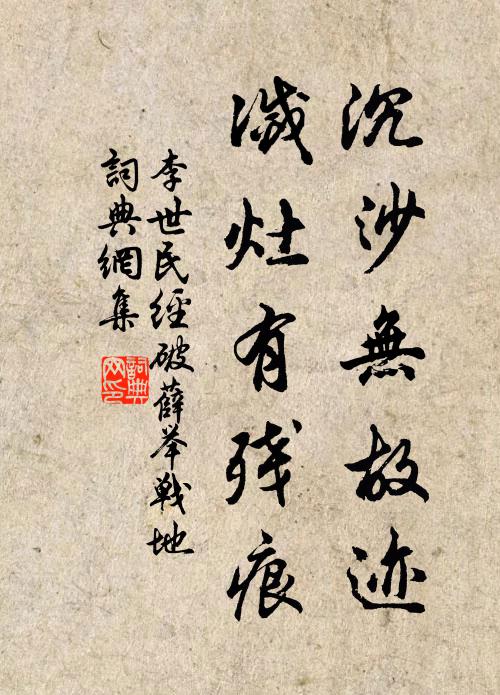 沉沙無故迹
減灶有残痕
李世民經破薛举戰地
詞典網集
詞典
网印